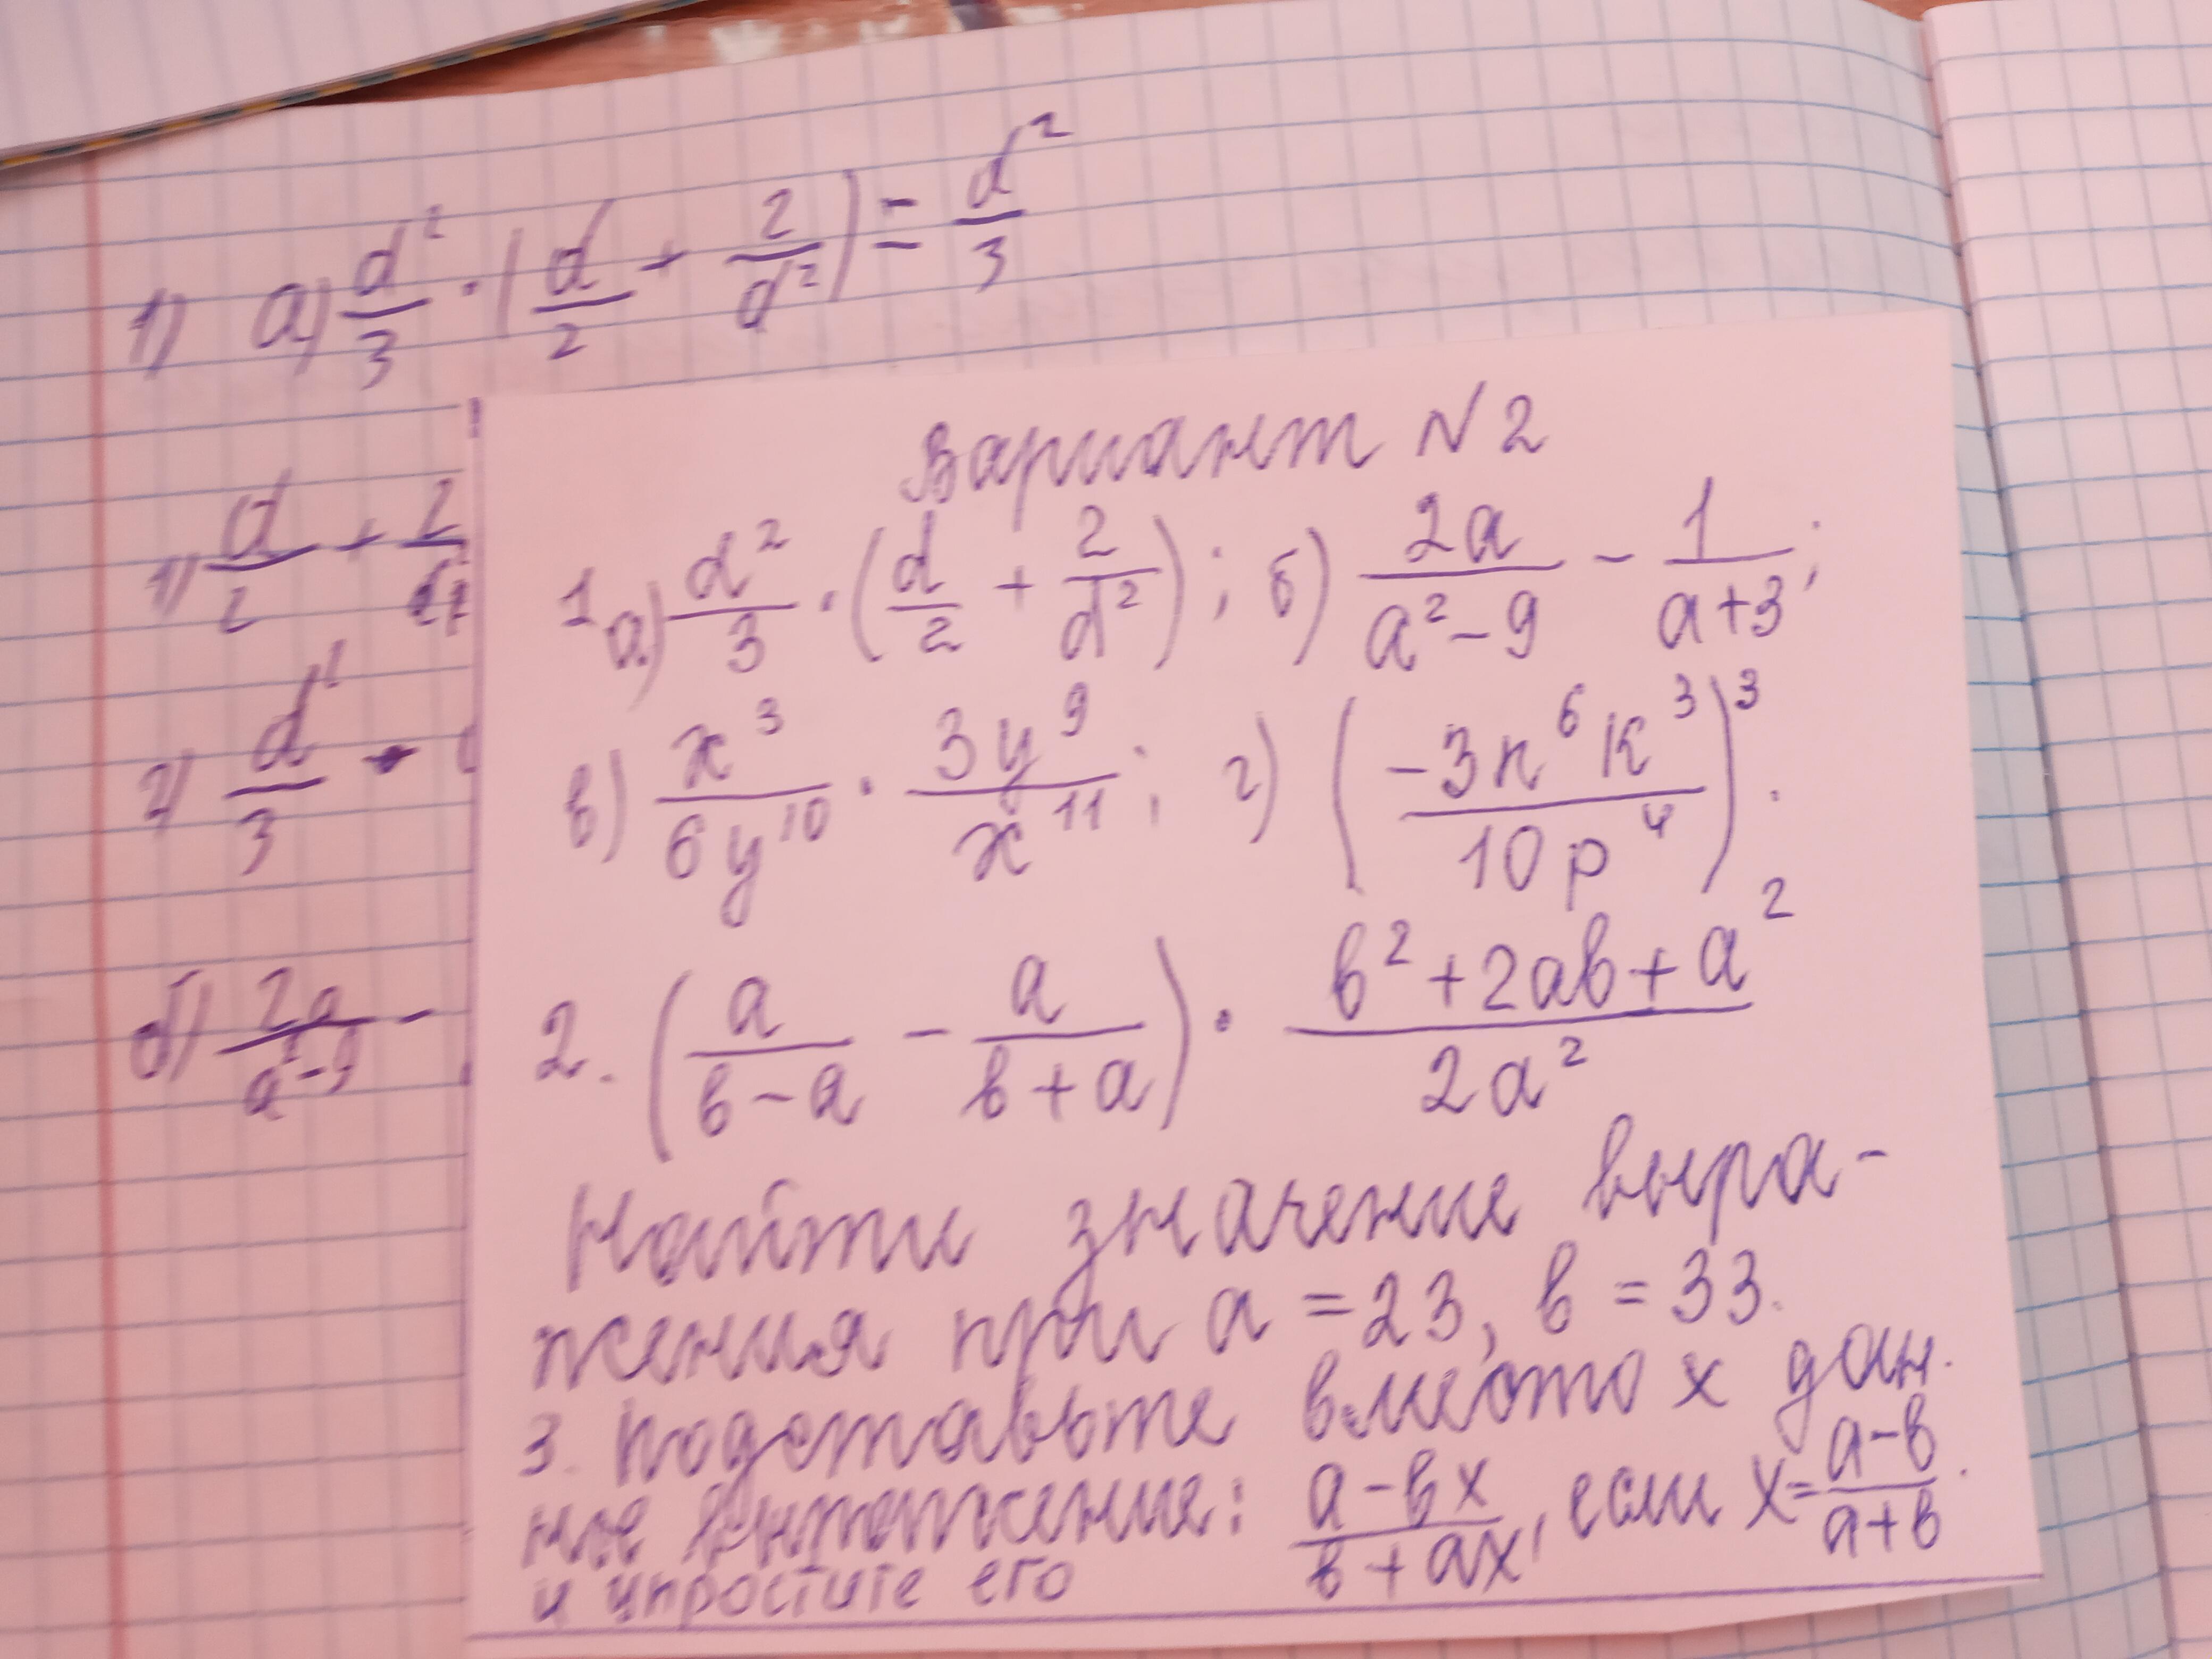 1) а) d²/3 · (d/2 + 2/d²) = d²/3
1) d/2 + 2/
2) d²/3 ·
б) 2a/a²-9 -
Вариант N2
1. а) d²/3 · (d/2 + 2/d²); б) 2a/a²-9 - 1/a+3;
в) x³/6y¹⁰ · 3y⁹/x¹¹; г) (-3n⁶k³/10p⁴)³.
2. (a/в-a - a/в+a) · в²+2aв+a²/2a²
Найти значение выра-
жения при a = 23, в = 33.
3. Подставьте вместо x дан.
ное выражение: a-вx/в+ax, если x = a-в/a+в.
и упростите его